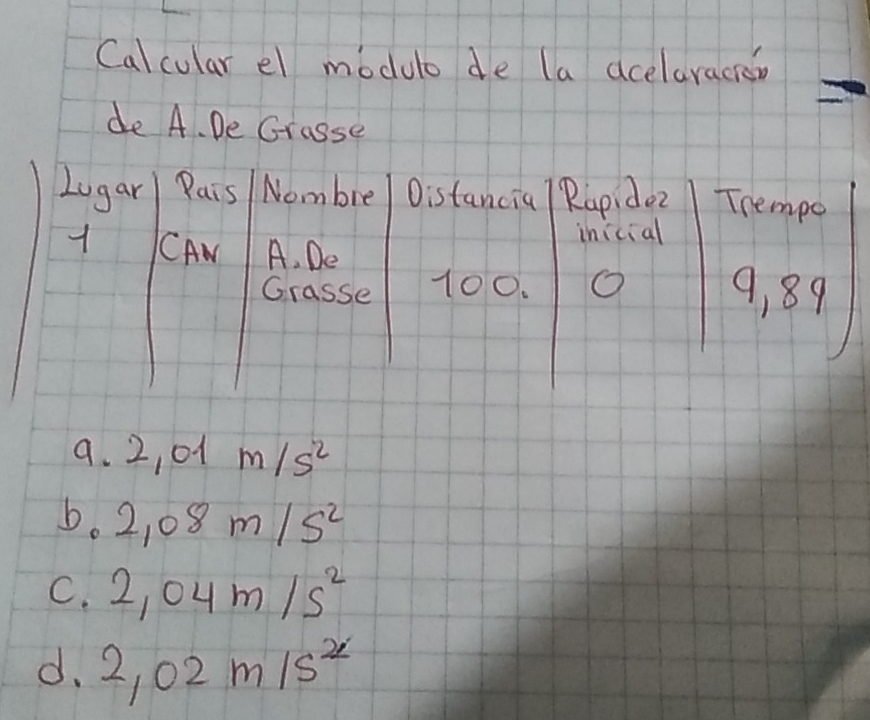 Calcular el módulo de la acelaración
de A. De Grasse
Lugar País Nombre Distancia Rapidez inicial Tiempo
1 CAN A. De Grasse 100. 0 9,89
a. 2,01 m/s²
b. 2,08 m/s²
c. 2,04 m/s²
d. 2,02 m/s²